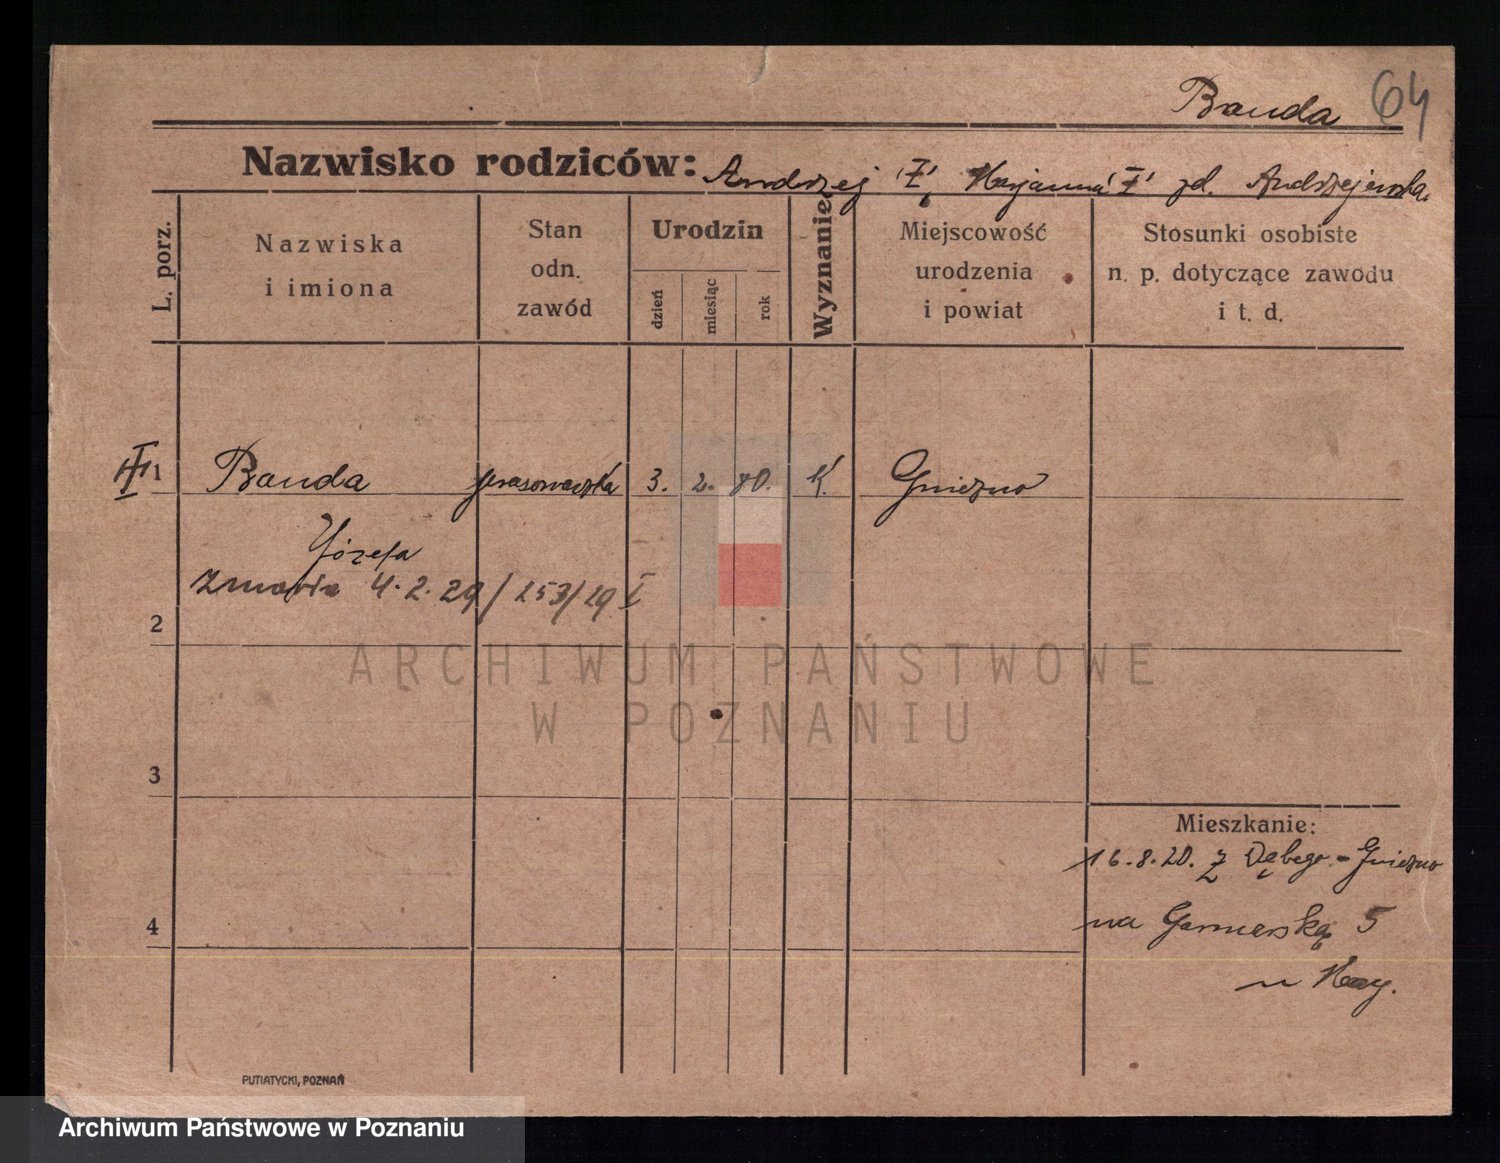 Banda 64
Nazwisko rodziców: Andrzej Marjanna zd. Andrzejewska
L. porz.
Nazwiska
i imiona
Stan
odn.
zawód
Urodzin
dzień
miesiąc
rok
Wyznanie
Miejscowość
urodzenia
i powiat
Stosunki osobiste
n. p. dotyczące zawodu
i t. d.
1 Banda prasowaczka 3. 2. 80. K. Gniezno
Józefa
zmarła 4.2.29/253/29 I
2
3
4
Mieszkanie:
16.8.20. z - Gniezno
na 5
u
PUTIATYCKI, POZNAŃ
ARCHIWUM PAŃSTWOWE
W POZNANIU
Archiwum Państwowe w Poznaniu